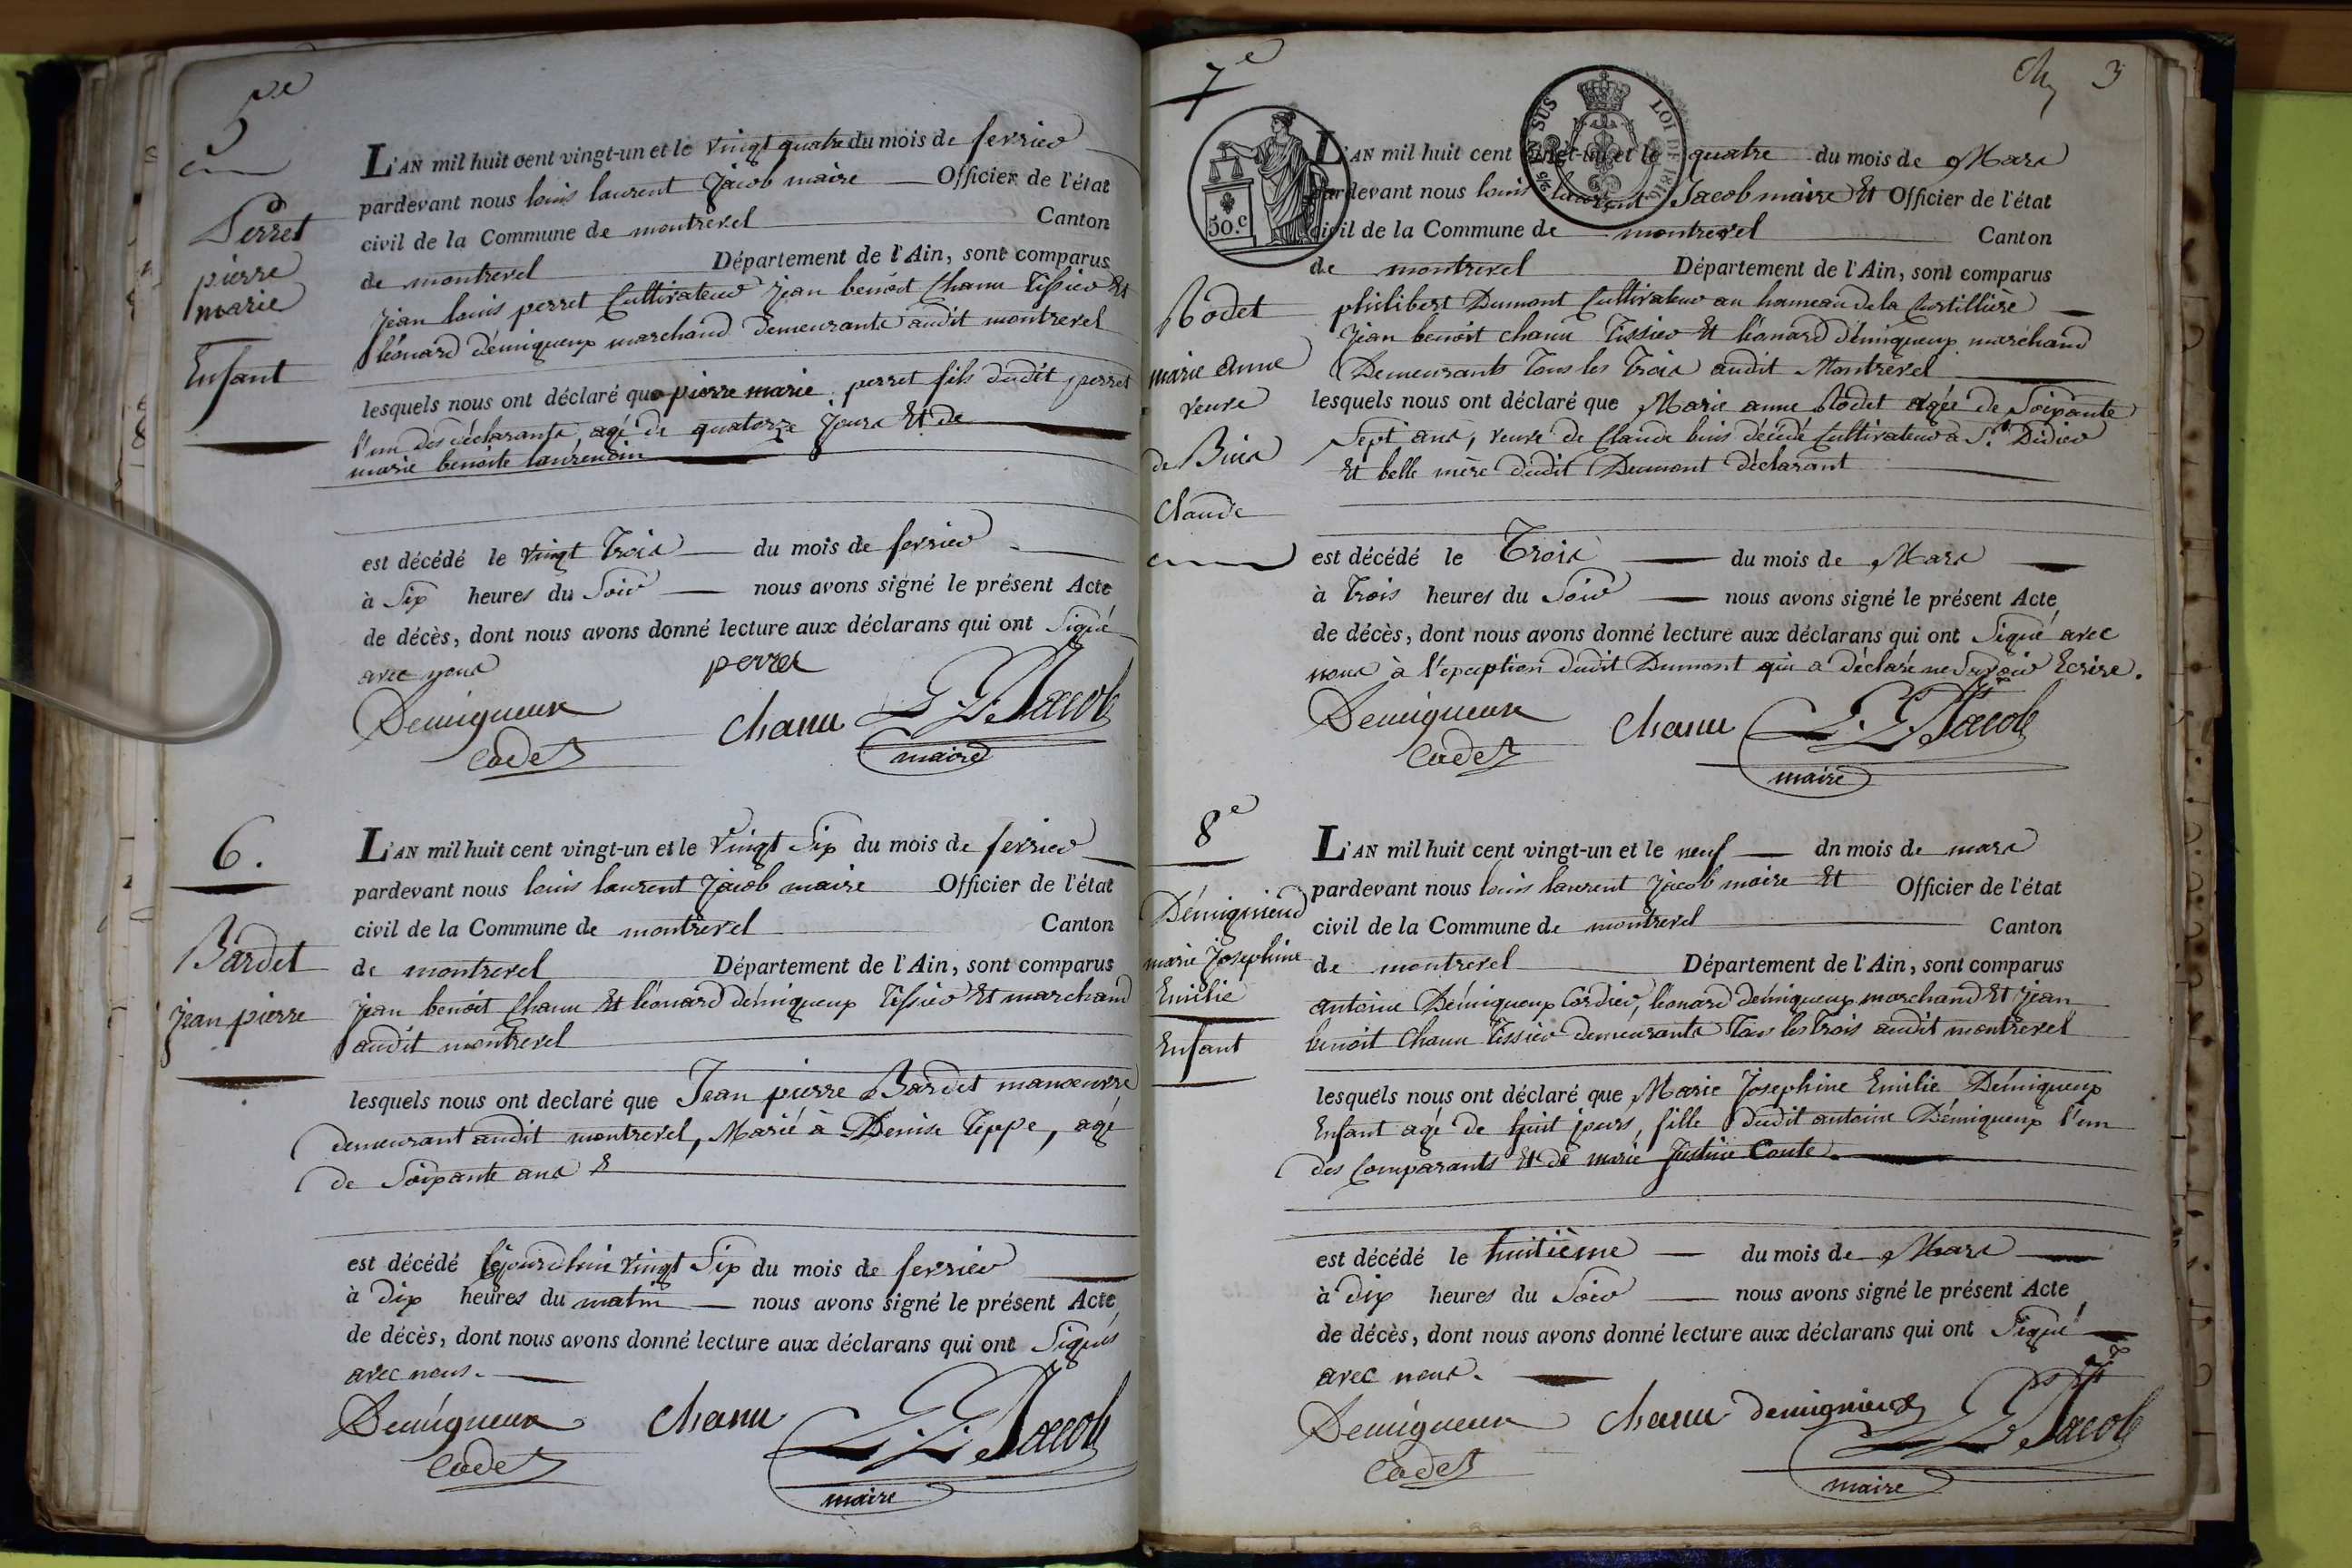 5.e
Perret
pierre
marie
Enfant
L'AN mil huit cent vingt-un et le vingt quatre du mois de fevrier
pardevant nous louis laurent Jacob maire Officier de l'état
civil de la Commune de montrevel Canton
de montrevel Département de l'Ain, sont comparus
jean louis perret Cultivateur jean benoit Chanu Tissier Et
léonard démiqueux marchand demeurants audit montrevel
lesquels nous ont déclaré que pierre marie perret fils dudit perret
l'un des déclarants, agé de quatorze jours Et de
marie benoite laurendin
est décédé le vingt Trois du mois de fevrier
à Six heures du Soir nous avons signé le présent Acte
de décès, dont nous avons donné lecture aux déclarans qui ont Signé
avec nous
perret
Demiqueux
Cadet
Chanu
L. L. Jacob
maire
6.
Bardet
jean pierre
L'AN mil huit cent vingt-un et le vingt Six du mois de fevrier
pardevant nous louis laurent Jacob maire Officier de l'état
civil de la Commune de montrevel Canton
de montrevel Département de l'Ain, sont comparus
jean benoit Chanu Et léonard démiqueux Tissier Et marchand
audit montrevel
lesquels nous ont declaré que Jean pierre Bardet manoeuvre
demeurant audit montrevel, Marié à Denise Teppe, agé
de Soixante ans
est décédé cejourdhui vingt Six du mois de fevrier
à dix heures du matin nous avons signé le présent Acte
de décès, dont nous avons donné lecture aux déclarans qui ont Signés
avec nous.
Demiqueux
Cadet
Chanu
L. L. Jacob
maire
7e
3
50.c
EN SUS
LOI DE 1816
Rodet
marie anne
veuve
de Buis
Claude
L'AN mil huit cent vingt-un et le quatre du mois de Mars
pardevant nous louis laurent Jacob maire Et Officier de l'état
civil de la Commune de montrevel Canton
de montrevel Département de l'Ain, sont comparus
philibert Dumont Cultivateur au hameau de la Curtillière
Jean benoit chanu Tissier Et léonard démiqueux marchand
Demeurants Tous les Trois audit Montrevel
lesquels nous ont déclaré que Marie anne Rodet agée de Soixante
Sept ans, veuve de Claude buis décédé Cultivateur à St. Didier
Et belle mère dudit Dumont déclarant
est décédé le Trois du mois de Mars
à Trois heures du Soir nous avons signé le présent Acte
de décès, dont nous avons donné lecture aux déclarans qui ont Signé avec
nous à l'exception dudit Dumont qui a déclaré ne Savoir Ecrire.
Demiqueux
Cadet
Chanu
L. L. Jacob
maire
8e
Démignieux
marie Josephine
Emilie
Enfant
L'AN mil huit cent vingt-un et le neuf dn mois de mars
pardevant nous louis laurent Jacob maire Et Officier de l'état
civil de la Commune de montrevel Canton
de montrevel Département de l'Ain, sont comparus
antoine Démiqueux Cordier, léonard démiqueux marchand Et jean
benoit Chanu Tissier demeurants Tous les Trois audit montrevel
lesquels nous ont déclaré que Marie Josephine Emilie Démiqueux
Enfant agé de huit jours, fille dudit antoine Démiqueux l'un
des Comparants Et de marie Justine Conte.
est décédé le huitième du mois de Mars
à dix heures du Soir nous avons signé le présent Acte
de décès, dont nous avons donné lecture aux déclarans qui ont Signé
avec nous.
Demiqueux
Cadet
Chanu
demignieux
L. L. Jacob
maire